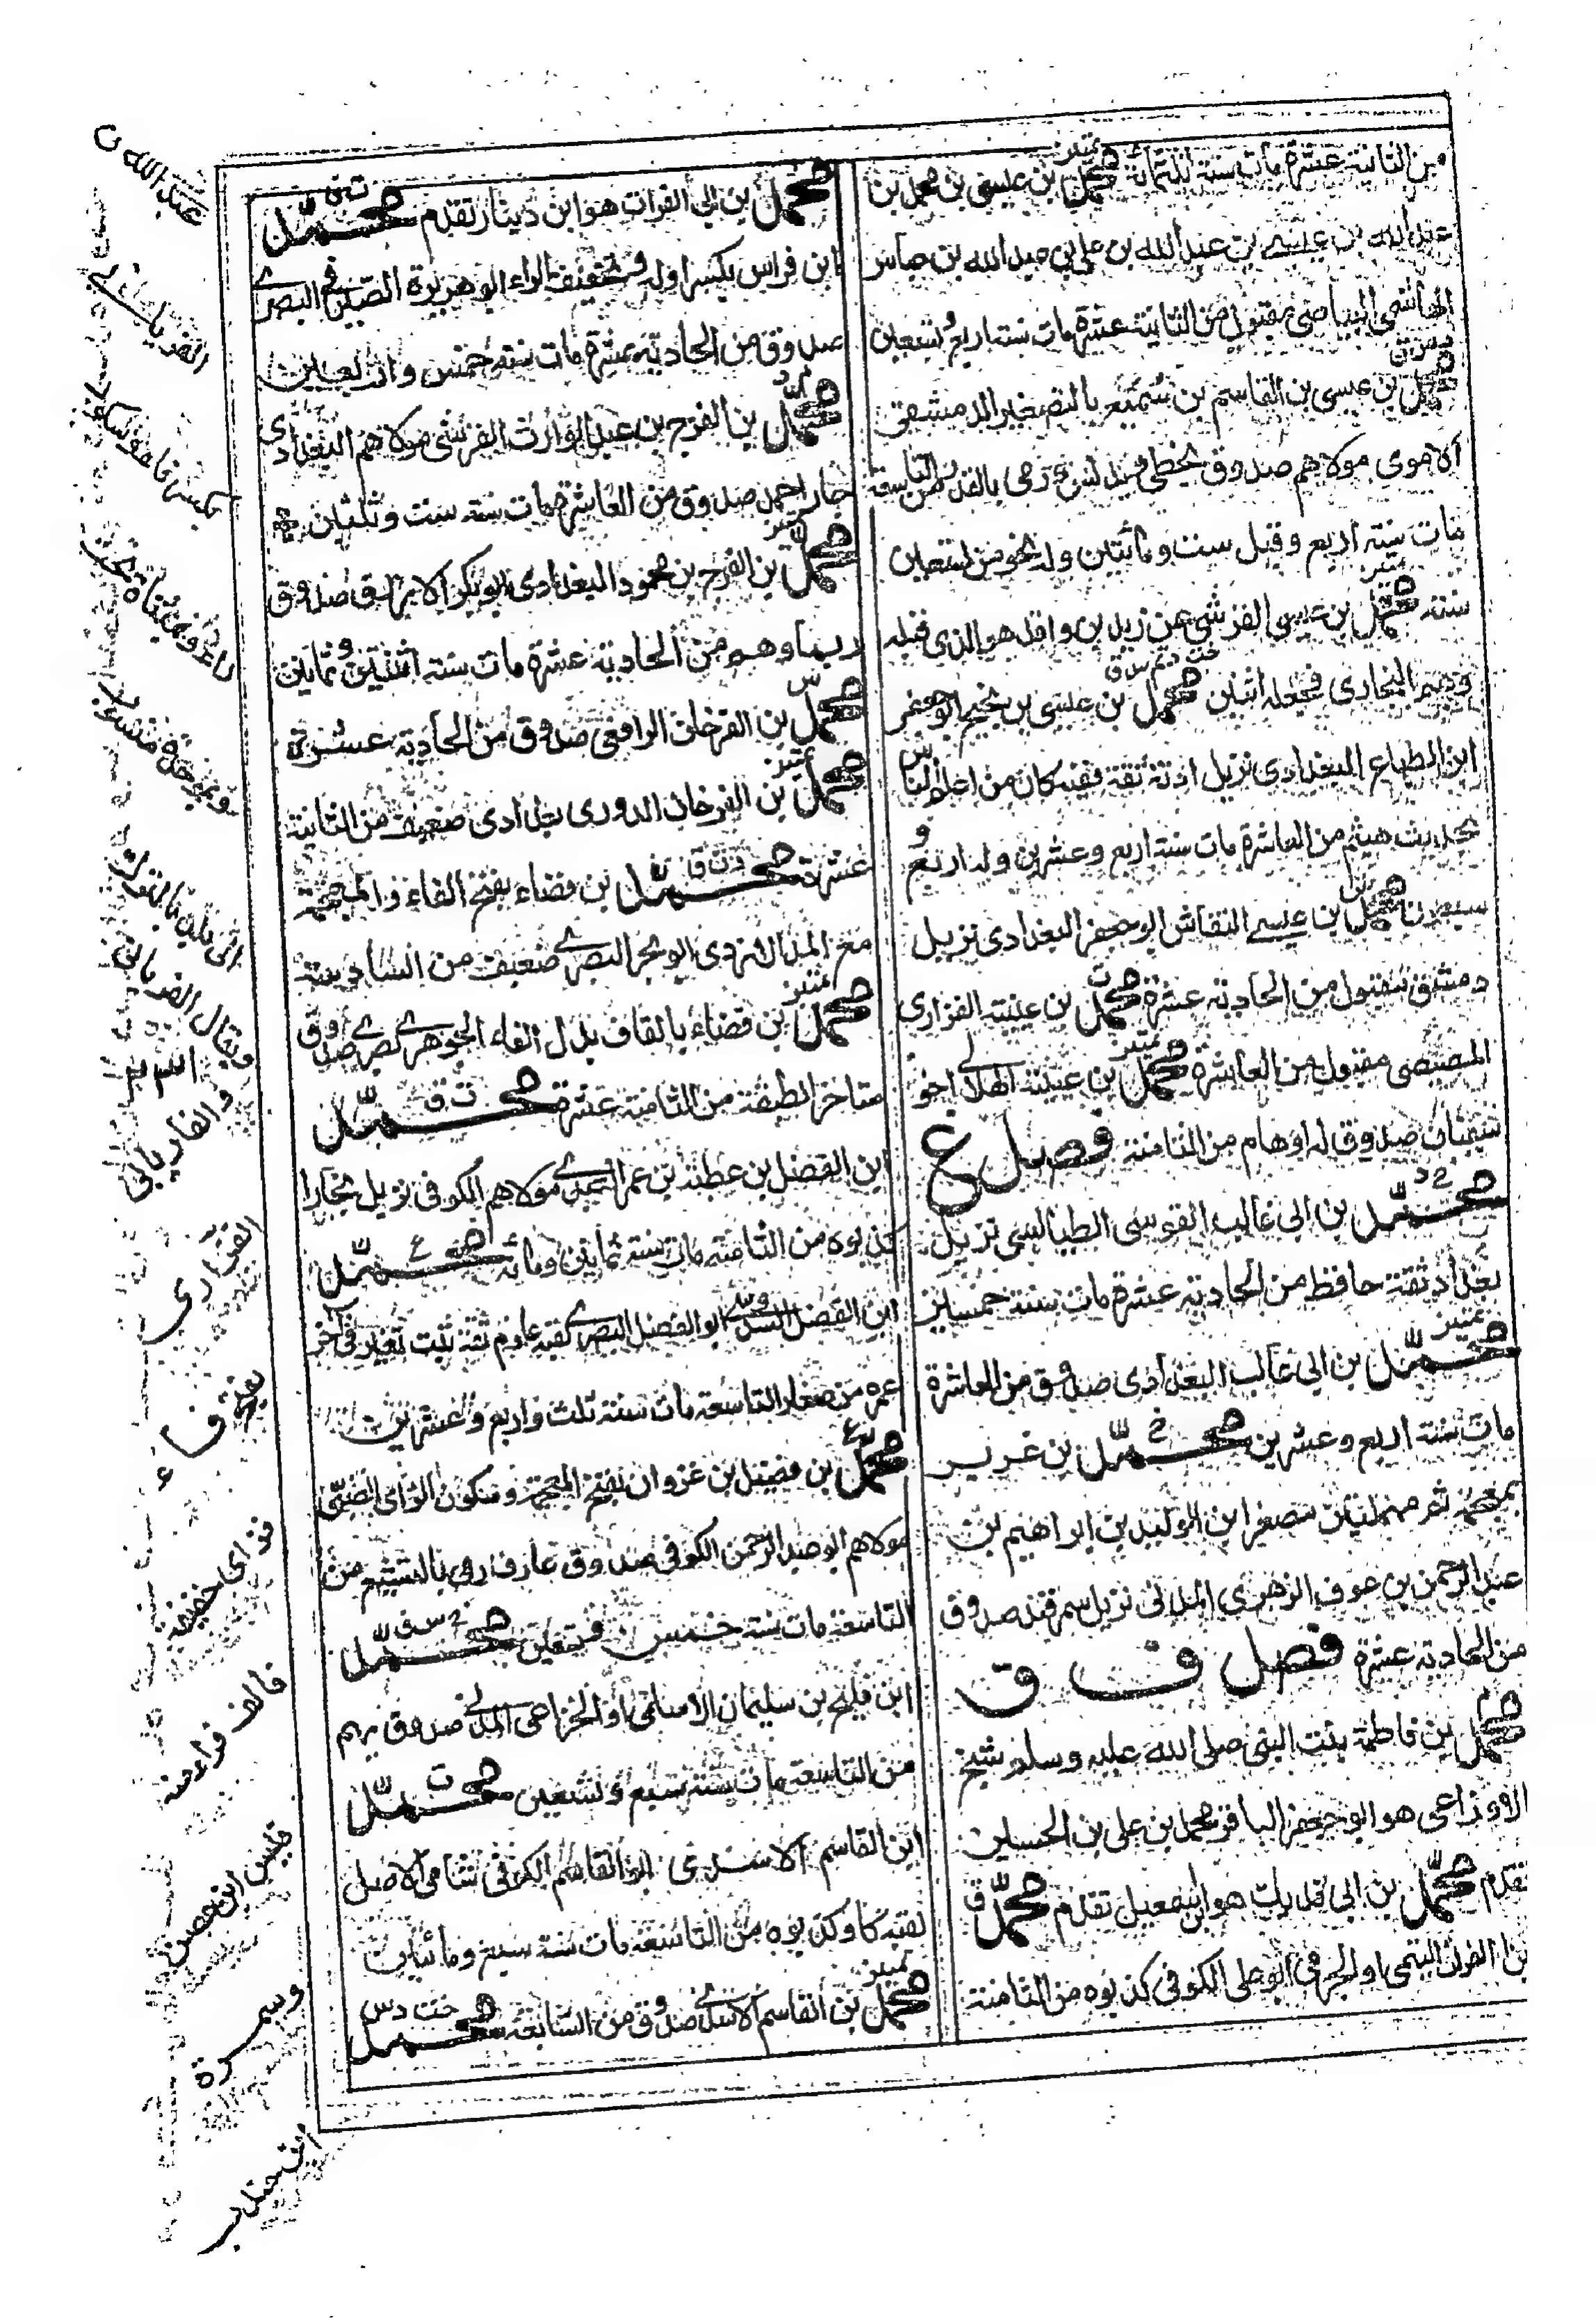 من الثانية عشرة مات سنة ثلثمائة محمد بن عيسى بن محمد بن
تمييز
عبد الله بن عيسى بن عبد الله بن علي بن عبد الله بن عباس
الهاشمي البياضي مقبول من الثانية عشرة مات سنة اربع وتسعين
د س ق
محمد بن عيسى بن القاسم بن سميع بالتصغير الدمشقي
الاموى مولاهم صدوق يخطى ويدلس ورمى بالقدر من التاسعة
مات سنة اربع وقيل ست ومائتين وله نحو من تسعين
تمييز
سنة محمد بن عيسى القرشي عن زيد بن واقد هو الذى قبله
ووهم البخارى فجعله اثنين محمد بن عيسى بن نجيح ابو جعفر
خت د تم س ق
ابن الطباع البغدادى نزيل اذنة ثقة فقيه كان من اعلم الناس
بحديث هشيم من العاشرة مات سنة اربع وعشرين وله اربع و
سبعون محمد بن عيسى النقاش ابو جعفر البغدادى نزيل
دمشق مقبول من الحادية عشرة محمد بن عيينة الفزارى
المصيصى مقبول من العاشرة محمد بن عيينة الهلالي اخو
تمييز
سفيان صدوق له اوهام من الثامنة فصل غ
محمد بن ابي غالب القومسى الطيالسي نزيل
بغداد ثقة حافظ من الحادية عشرة مات سنة خمسين
تمييز
محمد بن ابى غالب البغدادى صدوق من العاشرة
مات سنة اربع وعشرين محمد بن غرير
بمعجمة ثم مهملتين مصغر ابن الوليد بن ابراهيم بن
عبد الرحمن بن عوف الزهرى المدنى نزيل سمرقند صدوق
من الحادية عشرة فصل ف ق
محمد بن فاطمة بنت النبي صلى الله عليه وسلم شيخ
الاوزاعى هو ابو جعفر الباقر محمد بن علي بن الحسين
تقدم محمد بن ابى فديك هو ابن اسمعيل تقدم محمد
بن الفرات التيمى او الجرمى ابو على الكوفى كذبوه من الثامنة
محمد بن ابي الفرات هو ابن دينار تقدم محمد
ابن فراس بكسر اوله وتخفيف الراء ابو هريرة الصيرفي البصرى
صدوق من الحادية عشرة مات سنة خمس واربعين
محمد بن الفرج بن عبد الوارث القرشي مولاهم البغدادى
جار احمد صدوق من العاشرة مات سنة ست وثلثين
تمييز
محمد بن الفرج بن محمود البغدادى ابو بكر الازرق صدوق
ربما وهم من الحادية عشرة مات سنة اثنتين وثمانين
س
محمد بن الفرخان الرافقي صدوق من الحادية عشرة
تمييز
محمد بن الفرخان الدورى بغدادى ضعيف من الثانية
عشرة محمد بن فضاء بفتح الفاء والمعجمة
د ت ق
مع المد الازدى ابو بحر البصرى ضعيف من السادسة
تمييز
محمد بن قضاء بالقاف بدل الفاء الجوهرى بصرى صدوق
متاخر الطبقة من الثامنة عشرة محمد
ت ق
ابن الفضل بن عطية بن عمر العبدى مولاهم الكوفى نزيل بخارا
كذبوه من الثامنة مات سنة ثمانين ومائة محمد
ع
ابن الفضل السدوسى ابو الفضل البصرى لقبه عارم ثقة ثبت تغير في آخر
عمره من صغار التاسعة مات سنة ثلث واربع وعشرين
ع
محمد بن فضيل بن غزوان بفتح المعجمة وسكون الزاى الضبى
مولاهم ابو عبد الرحمن الكوفى صدوق عارف رمى بالتشيع من
التاسعة مات سنة خمس وتسعين محمد
خ س ق
ابن فليح بن سليمان الاسلمى او الخزاعى المدنى صدوق يهم
من التاسعة مات سنة سبع وتسعين محمد
ت
ابن القاسم الاسدى ابو القاسم الكوفى شامى الاصل
لقبه كاو كذبوه من التاسعة مات سنة سبع ومائتين
تمييز
محمد بن القاسم الاسدى صدوق من السابعة محمد
خت د س
عبد الله
الفريابى
بكسر فاء وسكون
راء ومثناة تحت
وبموحدة منسوب
ويقال الفريابي
والفاريابي
الفزارى
بفتح فاء
فزاى خفيفة
فالف فراء منه